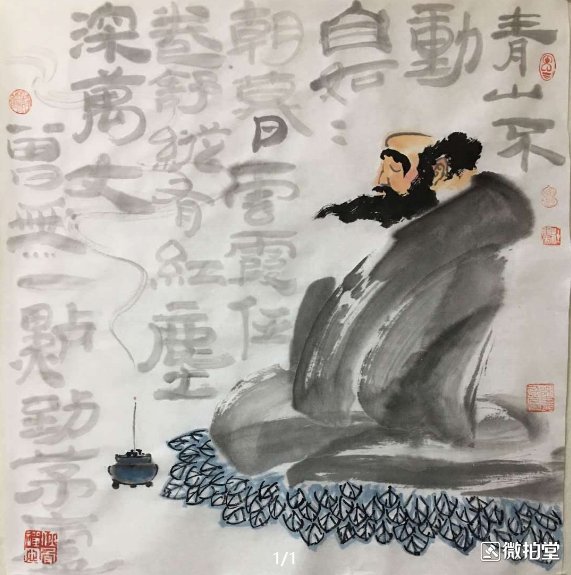 青山不
動
自如〻
朝暮雲霞任
卷舒縱有紅塵
深萬丈
曾無一點到茅廬
1/1
微拍堂